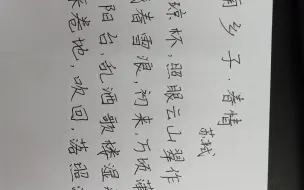 乡子·春情
苏轼
琼杯,照眼云山翠作
春雪浪,初来,万顷蒲
阳台,乱洒歌楼湿
卷地,吹回,落照